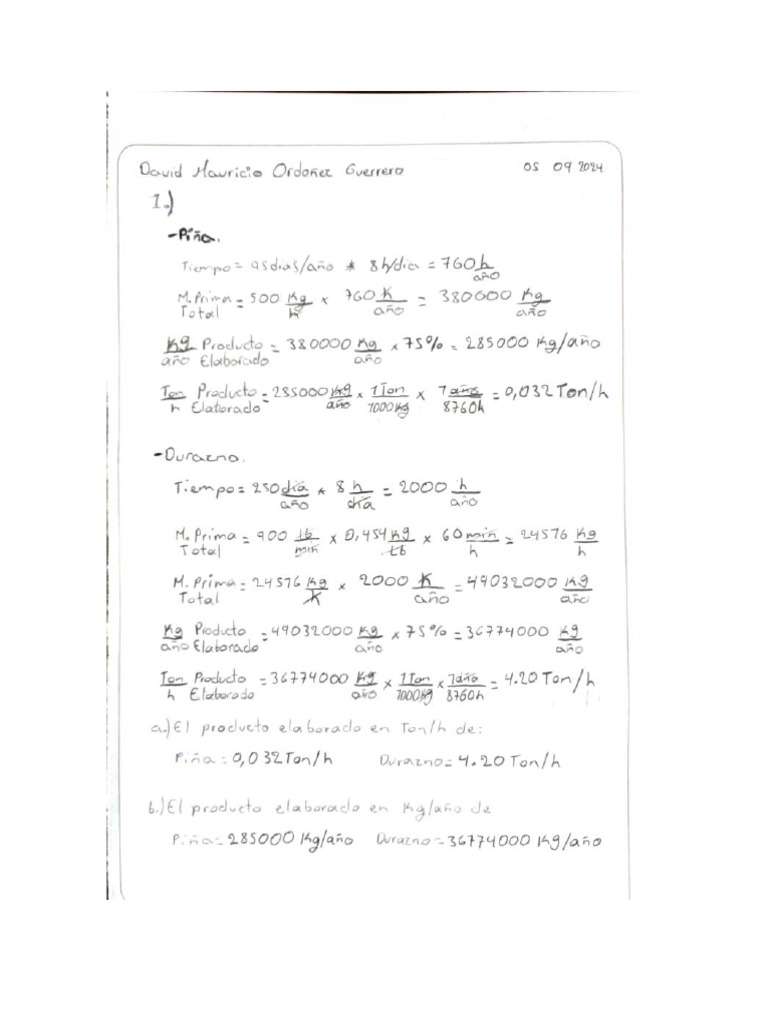 David Mauricio Ordoñez Guerrero 05 09 2024
1.)
-Piña.
Tiempo = 95dias/año * 8h/dia = 760 h/año
M.Prima Total = 500 Kg/h x 760 h/año = 380000 Kg/año
Kg/año Producto Elaborado = 380000 Kg/año x 75% = 285000 Kg/año
Ton/h Producto Elaborado = 285000 Kg/año x 1Ton/1000Kg x 1año/8760h = 0,032 Ton/h
-Durazno.
Tiempo = 250 dia/año * 8 h/dia = 2000 h/año
M. Prima Total = 900 Lb/min x 0,454 Kg/Lb x 60 min/h = 24576 Kg/h
M. Prima Total = 24576 Kg/h x 2000 h/año = 49032000 Kg/año
Kg/año Producto Elaborado = 49032000 Kg/año x 75% = 36774000 Kg/año
Ton/h Producto Elaborado = 36774000 Kg/año x 1Ton/1000Kg x 1año/8760h = 4.20 Ton/h
a.) El producto elaborado en Ton/h de:
Piña = 0,032 Ton/h Durazno = 4.20 Ton/h
b.) El producto elaborado en Kg/año de
Piña = 285000 Kg/año Durazno = 36774000 Kg/año